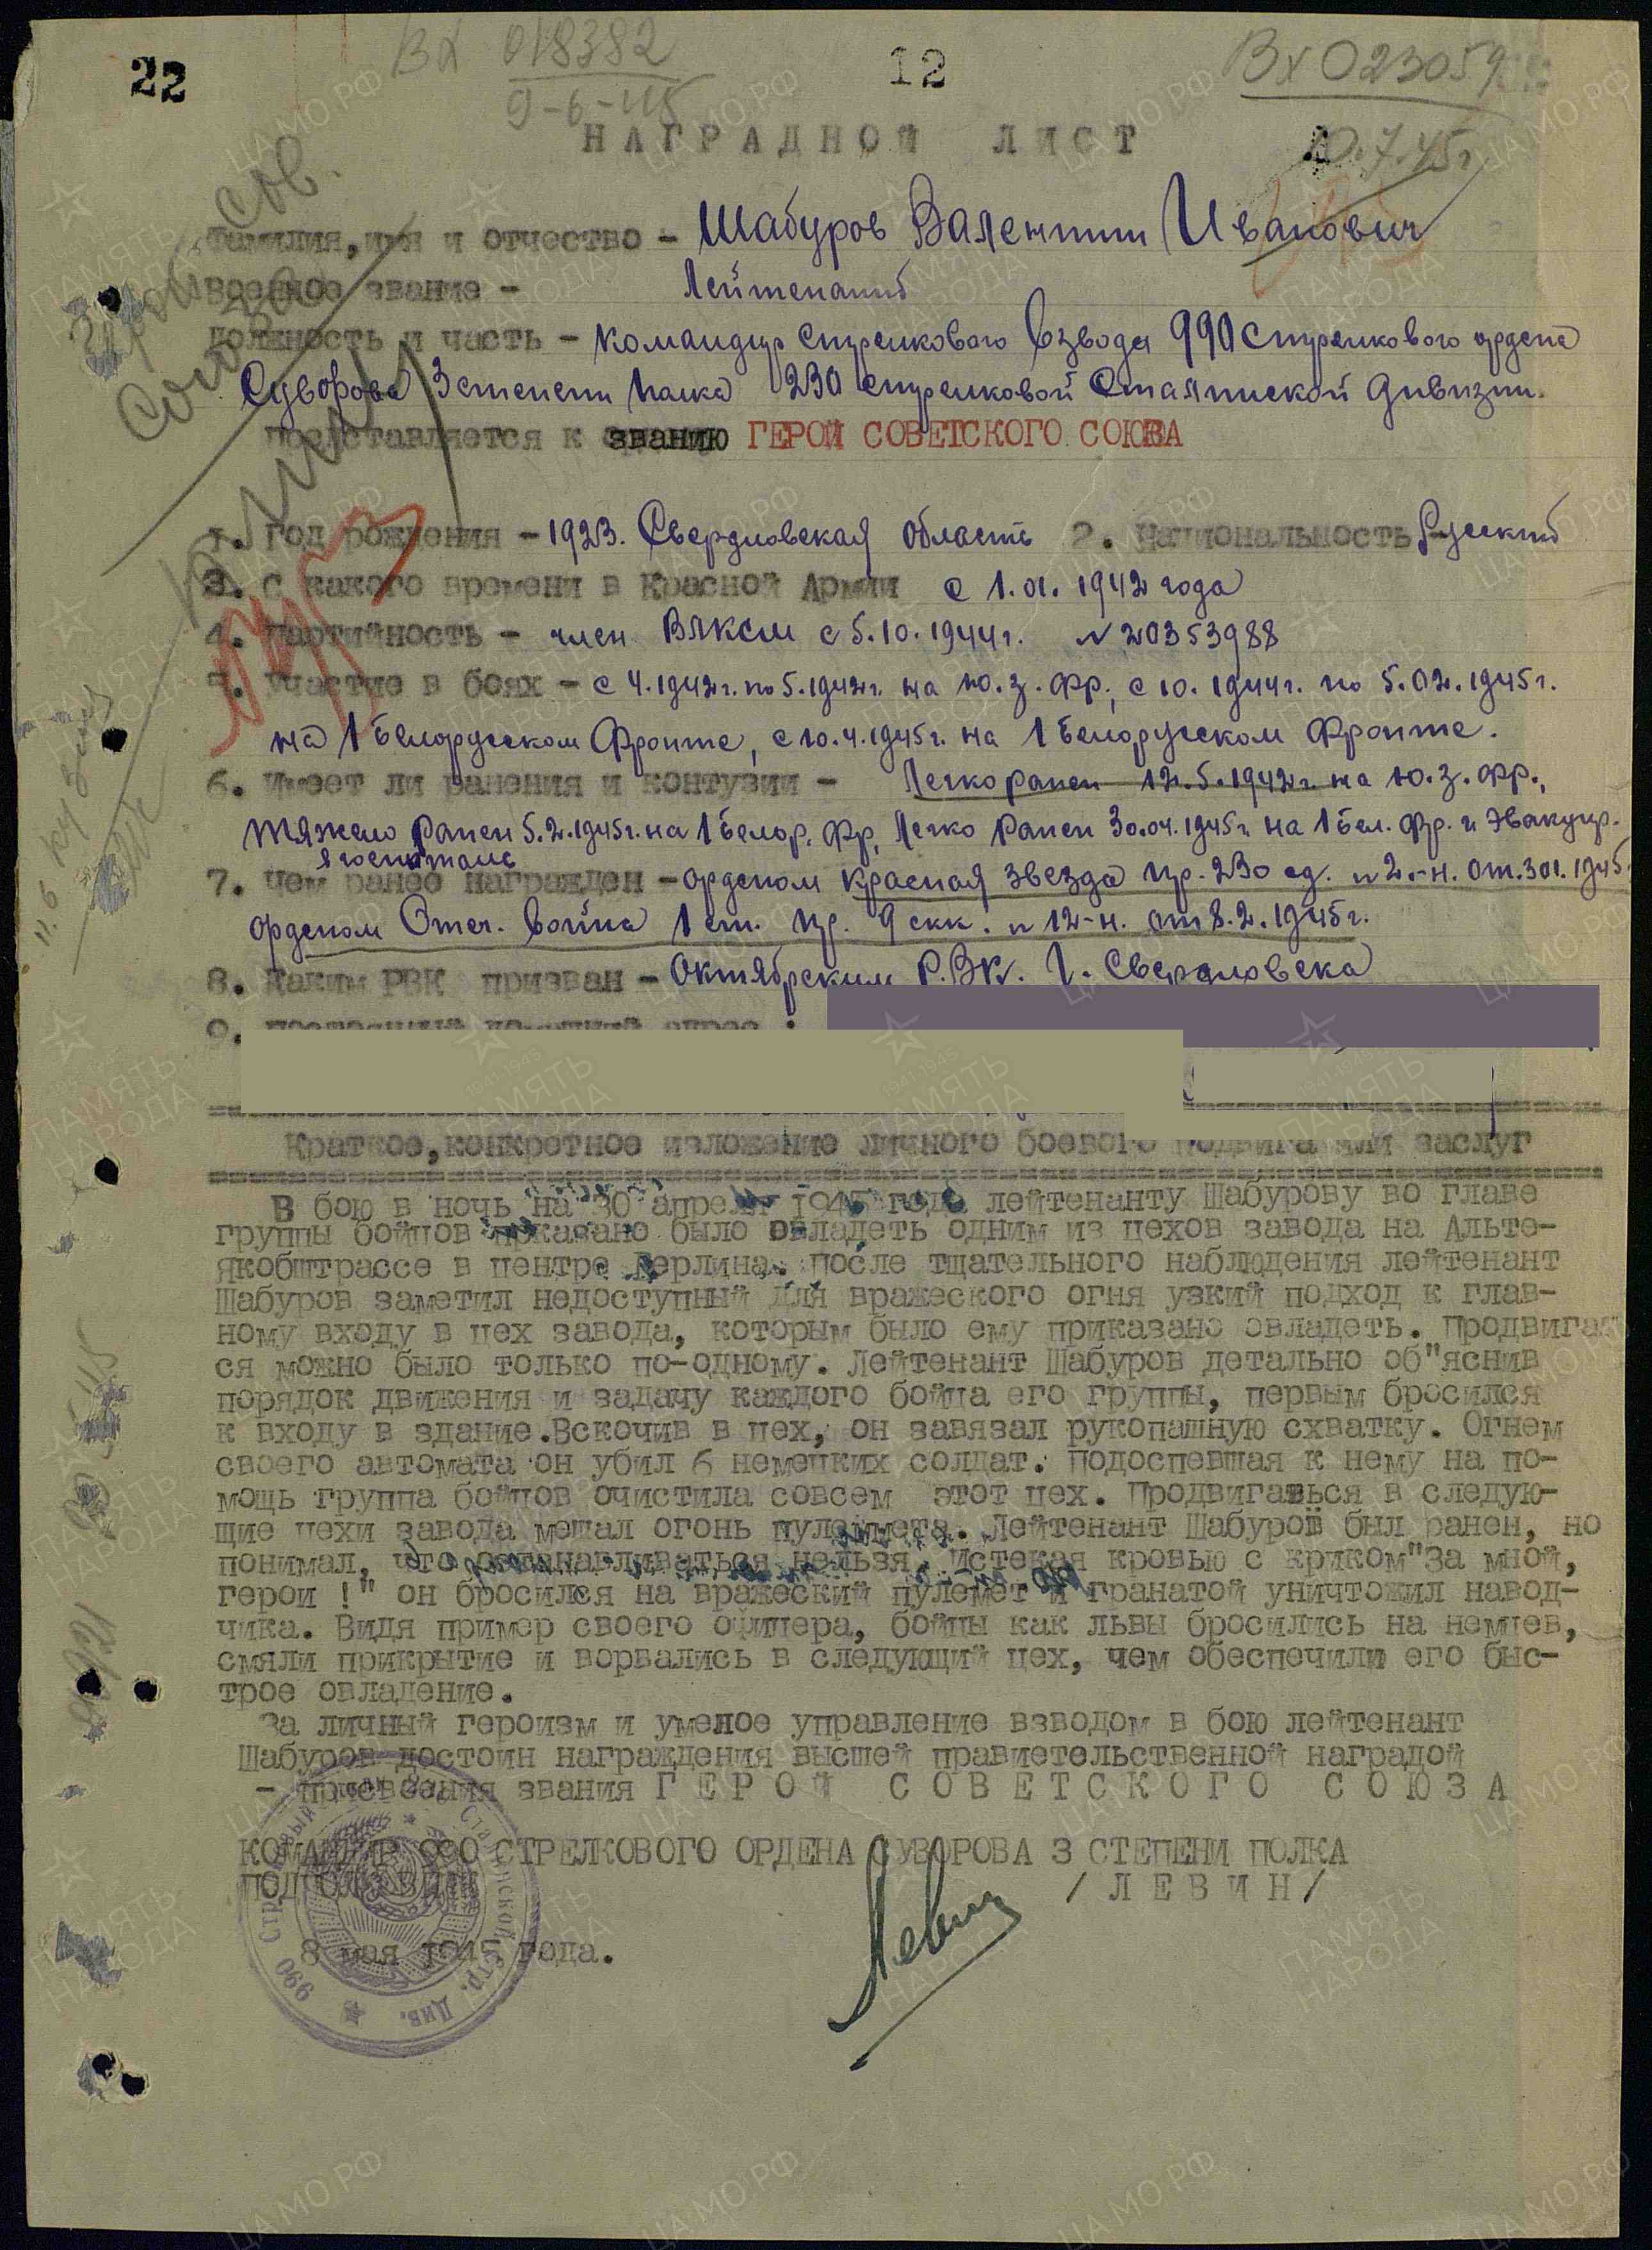 22
Вх 018382
12
Вх 023059
9-6-45
10.7.45г
НАГРАДНОЙ ЛИСТ
Фамилия, имя и отчество - Шабуров Валентин Иванович
военное звание - Лейтенант
должность и часть - командир стрелкового взвода 990 стрелкового ордена
Суворова 3 степени полка 230 стрелковой Сталинской дивизии.
представляется к званию ГЕРОЙ СОВЕТСКОГО СОЮЗА
1. Год рождения - 1923. Свердловская область 2. Национальность Русский
3. С какого времени в Красной Армии с 1.01.1942 года
4. партийность - член ВЛКСМ с 5.10.1944г. N 20353988
5. участие в боях - с 4.1942г. по 5.1942г. на Ю.З.Фр., с 10.1944г. по 5.02.1945г.
на 1 Белорусском Фронте, с 10.4.1945г. на 1 Белорусском Фронте.
6. Имеет ли ранения и контузии - Легко ранен 12.5.1942г. на Ю.З.Фр.,
тяжело ранен 5.2.1945г. на 1 Белор. Фр, Легко ранен 30.04.1945г на 1 Бел. Фр. и Эвакуир.
в госпиталь
7. чем ранее награжден - орденом красная звезда пр. 230 сд. N 2-н. от 3.01.1945
орденом Отеч. война 1 ст. пр. 9 скк. N 12-н. от 8.2.1945г.
8. Каким РВК призван - Октябрьским Р.ВК. г. Свердловска
9. постоянный домашний адрес:
Краткое, конкретное изложение личного боевого подвига или заслуг
В бою в ночь на 30 апреля 1945 года лейтенанту Шабурову во главе
группы бойцов приказано было овладеть одним из цехов завода на Альте-
якобштрассе в центре Берлина. После тщательного наблюдения лейтенант
Шабуров заметил недоступный для вражеского огня узкий подход к глав-
ному входу в цех завода, которым было ему приказано овладеть. Продвигать
ся можно было только по-одному. Лейтенант Шабуров детально об"яснив
порядок движения и задачу каждого бойца его группы, первым бросился
к входу в здание.Вскочив в цех, он завязал рукопашную схватку. Огнем
своего автомата он убил 6 немецких солдат. Подоспевшая к нему на по-
мощь группа бойцов очистила совсем этот цех. Продвигаться в следую-
щие цехи завода мешал огонь пулемета. Лейтенант Шабуров был ранен, но
понимал, что останавливаться нельзя. Истекая кровью с криком"За мной,
герои !" он бросился на вражеский пулемет и гранатой уничтожил навод-
чика. Видя пример своего офицера, бойцы как львы бросились на немцев,
смяли прикрытие и ворвались в следующий цех, чем обеспечили его быс-
трое овладение.
За личный героизм и умелое управление взводом в бою лейтенант
Шабуров достоин награждения высшей правиетельственной наградой
- присвоения звания ГЕРОЙ СОВЕТСКОГО СОЮЗА
КОМАНДИР 990 СТРЕЛКОВОГО ОРДЕНА СУВОРОВА 3 СТЕПЕНИ ПОЛКА
ПОДПОЛКОВНИК /ЛЕВИН/
Левин
8 мая 1945 года.